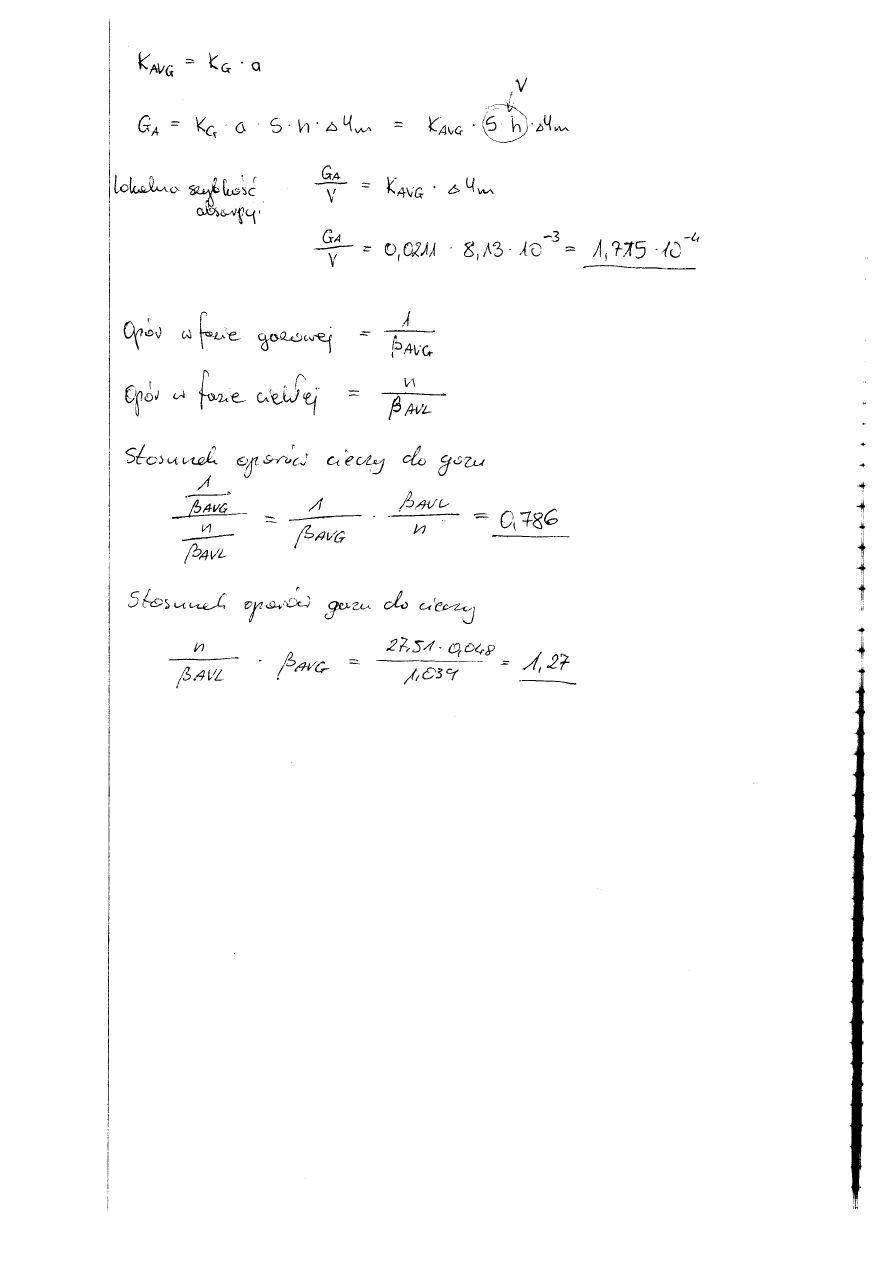 K_AVG = K_G · a
V
G_A = K_G · a · S · h · Δy_m = K_AVG · S h · Δy_m
lokalna szybkość absorpcji G_A / V = K_AVG · Δy_m
G_A / V = 0,0211 · 8,13 · 10^-3 = 1,715 · 10^-4
Opór w fazie gazowej = 1 / β_AVG
Opór w fazie ciekłej = n / β_AVL
Stosunek oporów cieczy do gazu
(1 / β_AVG) / (n / β_AVL) = 1 / β_AVG · β_AVL / n = 0,786
Stosunek oporów gazu do cieczy
n / β_AVL · β_AVG = 27,51 · 0,048 / 1,039 = 1,27